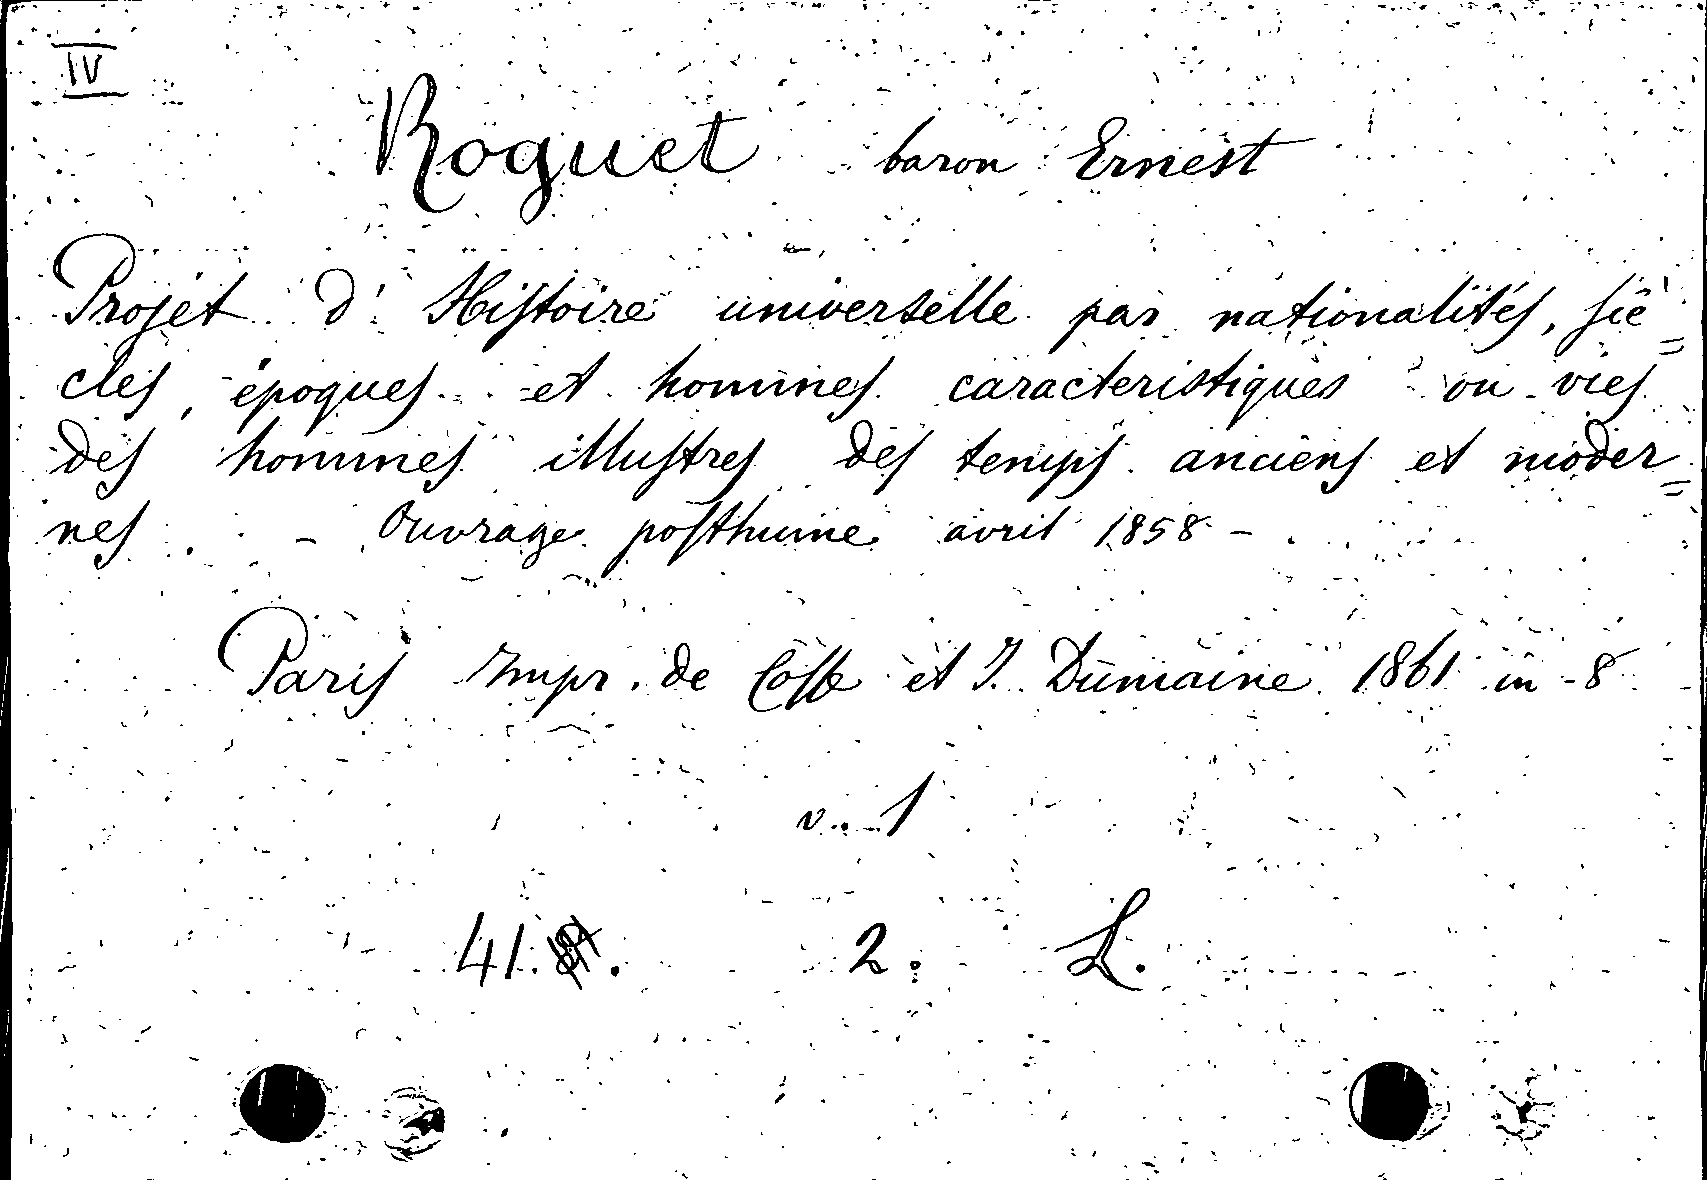 IV
Roguet baron Ernest
Projet d'Histoire universelle par nationalités, siè=
cles, époques et hommes caracteristiques ou vies
des hommes illustres des temps anciens et moder=
nes. - Ouvrage posthume avril 1858 -
Paris Impr. de Cosse et J. Dumaine 1861 in-8
v. 1
41. 2. L.